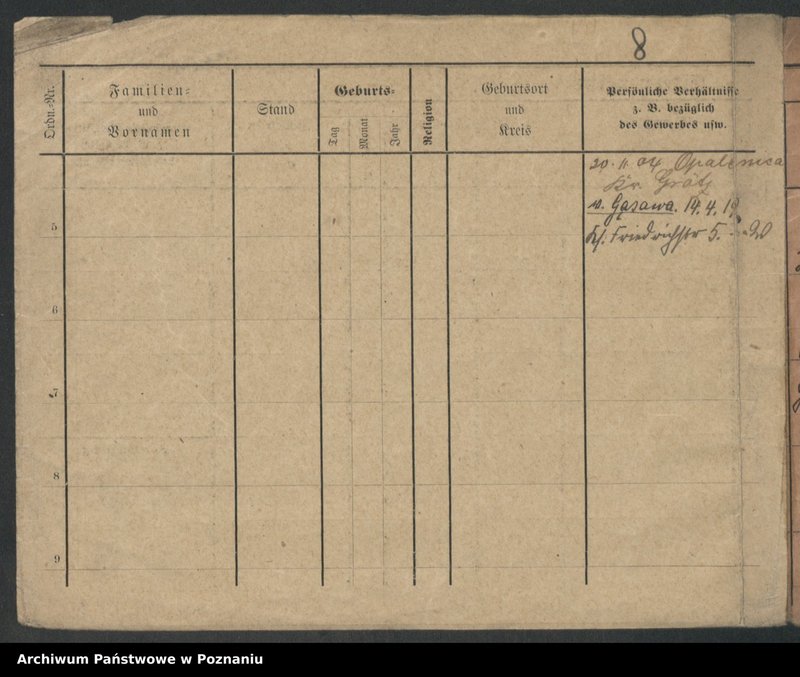 8
Ordn.-Nr.
Familien-
und
Vornamen
Stand
Geburts-
Tag
Monat
Jahr
Religion
Geburtsort
und
Kreis
Persönliche Verhältnisse
z. B. bezüglich
des Gewerbes usw.
20. 11. 04 Opalenica
Kr. Grätz
v. Gąsawa. 14. 4. 19
Friedrichstr 5. 20
5
6
7
8
9
Archiwum Państwowe w Poznaniu